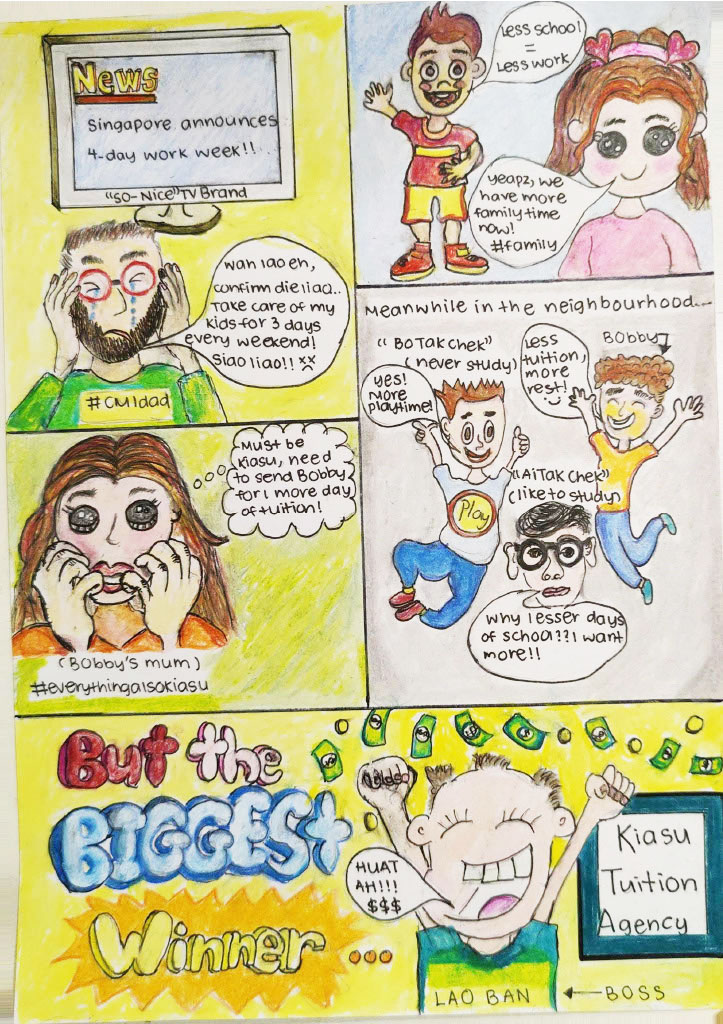 News
Singapore announces
4-day work week!!
"So-Nice" TV Brand
wah lao eh,
confirm die liao..
Take care of my
kids for 3 days
every weekend!
siao liao!! xx
#CMIdad
Less school
=
Less work
yeapz, we
have more
family time
now!
#family
Must be
kiasu, need
to send Bobby
for 1 more day
of tuition!
(Bobby's mum)
#everythingalsokiasu
Meanwhile in the neighbourhood...
"BoTak chek"
(never study)
Yes!
More
playtime!
Play
Less
tuition,
more
rest!
Bobby
"AiTak Chek"
(like to study)
Why lesser days
of school?? I want
more!!
But the
BIGGEST
Winner...
HUAT
AH!!!
$$$
LAO BAN
BOSS
Kiasu
Tuition
Agency